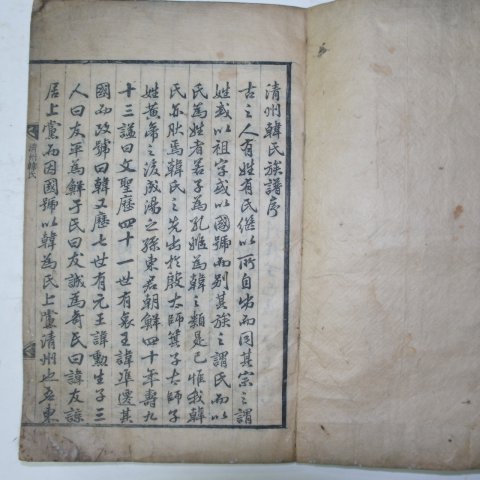 清州韓氏族譜序
古之人有姓有氏継以所自出而同其宗之謂
姓或以祖字或以國號而别其族之謂氏而以
氏為姓者若子為孔姬為韓之類是已惟我韓
氏亦耿焉韓氏之先出於殷太師箕子太師子
姓黄帝之後成湯之孫東君朝鮮四十年壽九
十三諡曰文聖歷四十一世有哀王諱準遷其
國而改號曰韓又歷七世有元王諱勳生子三
人曰友平為鮮于氏曰友誠為奇氏曰諱友諒
居上黨而因國號以韓為氏上黨清州也吾東
清州韓氏